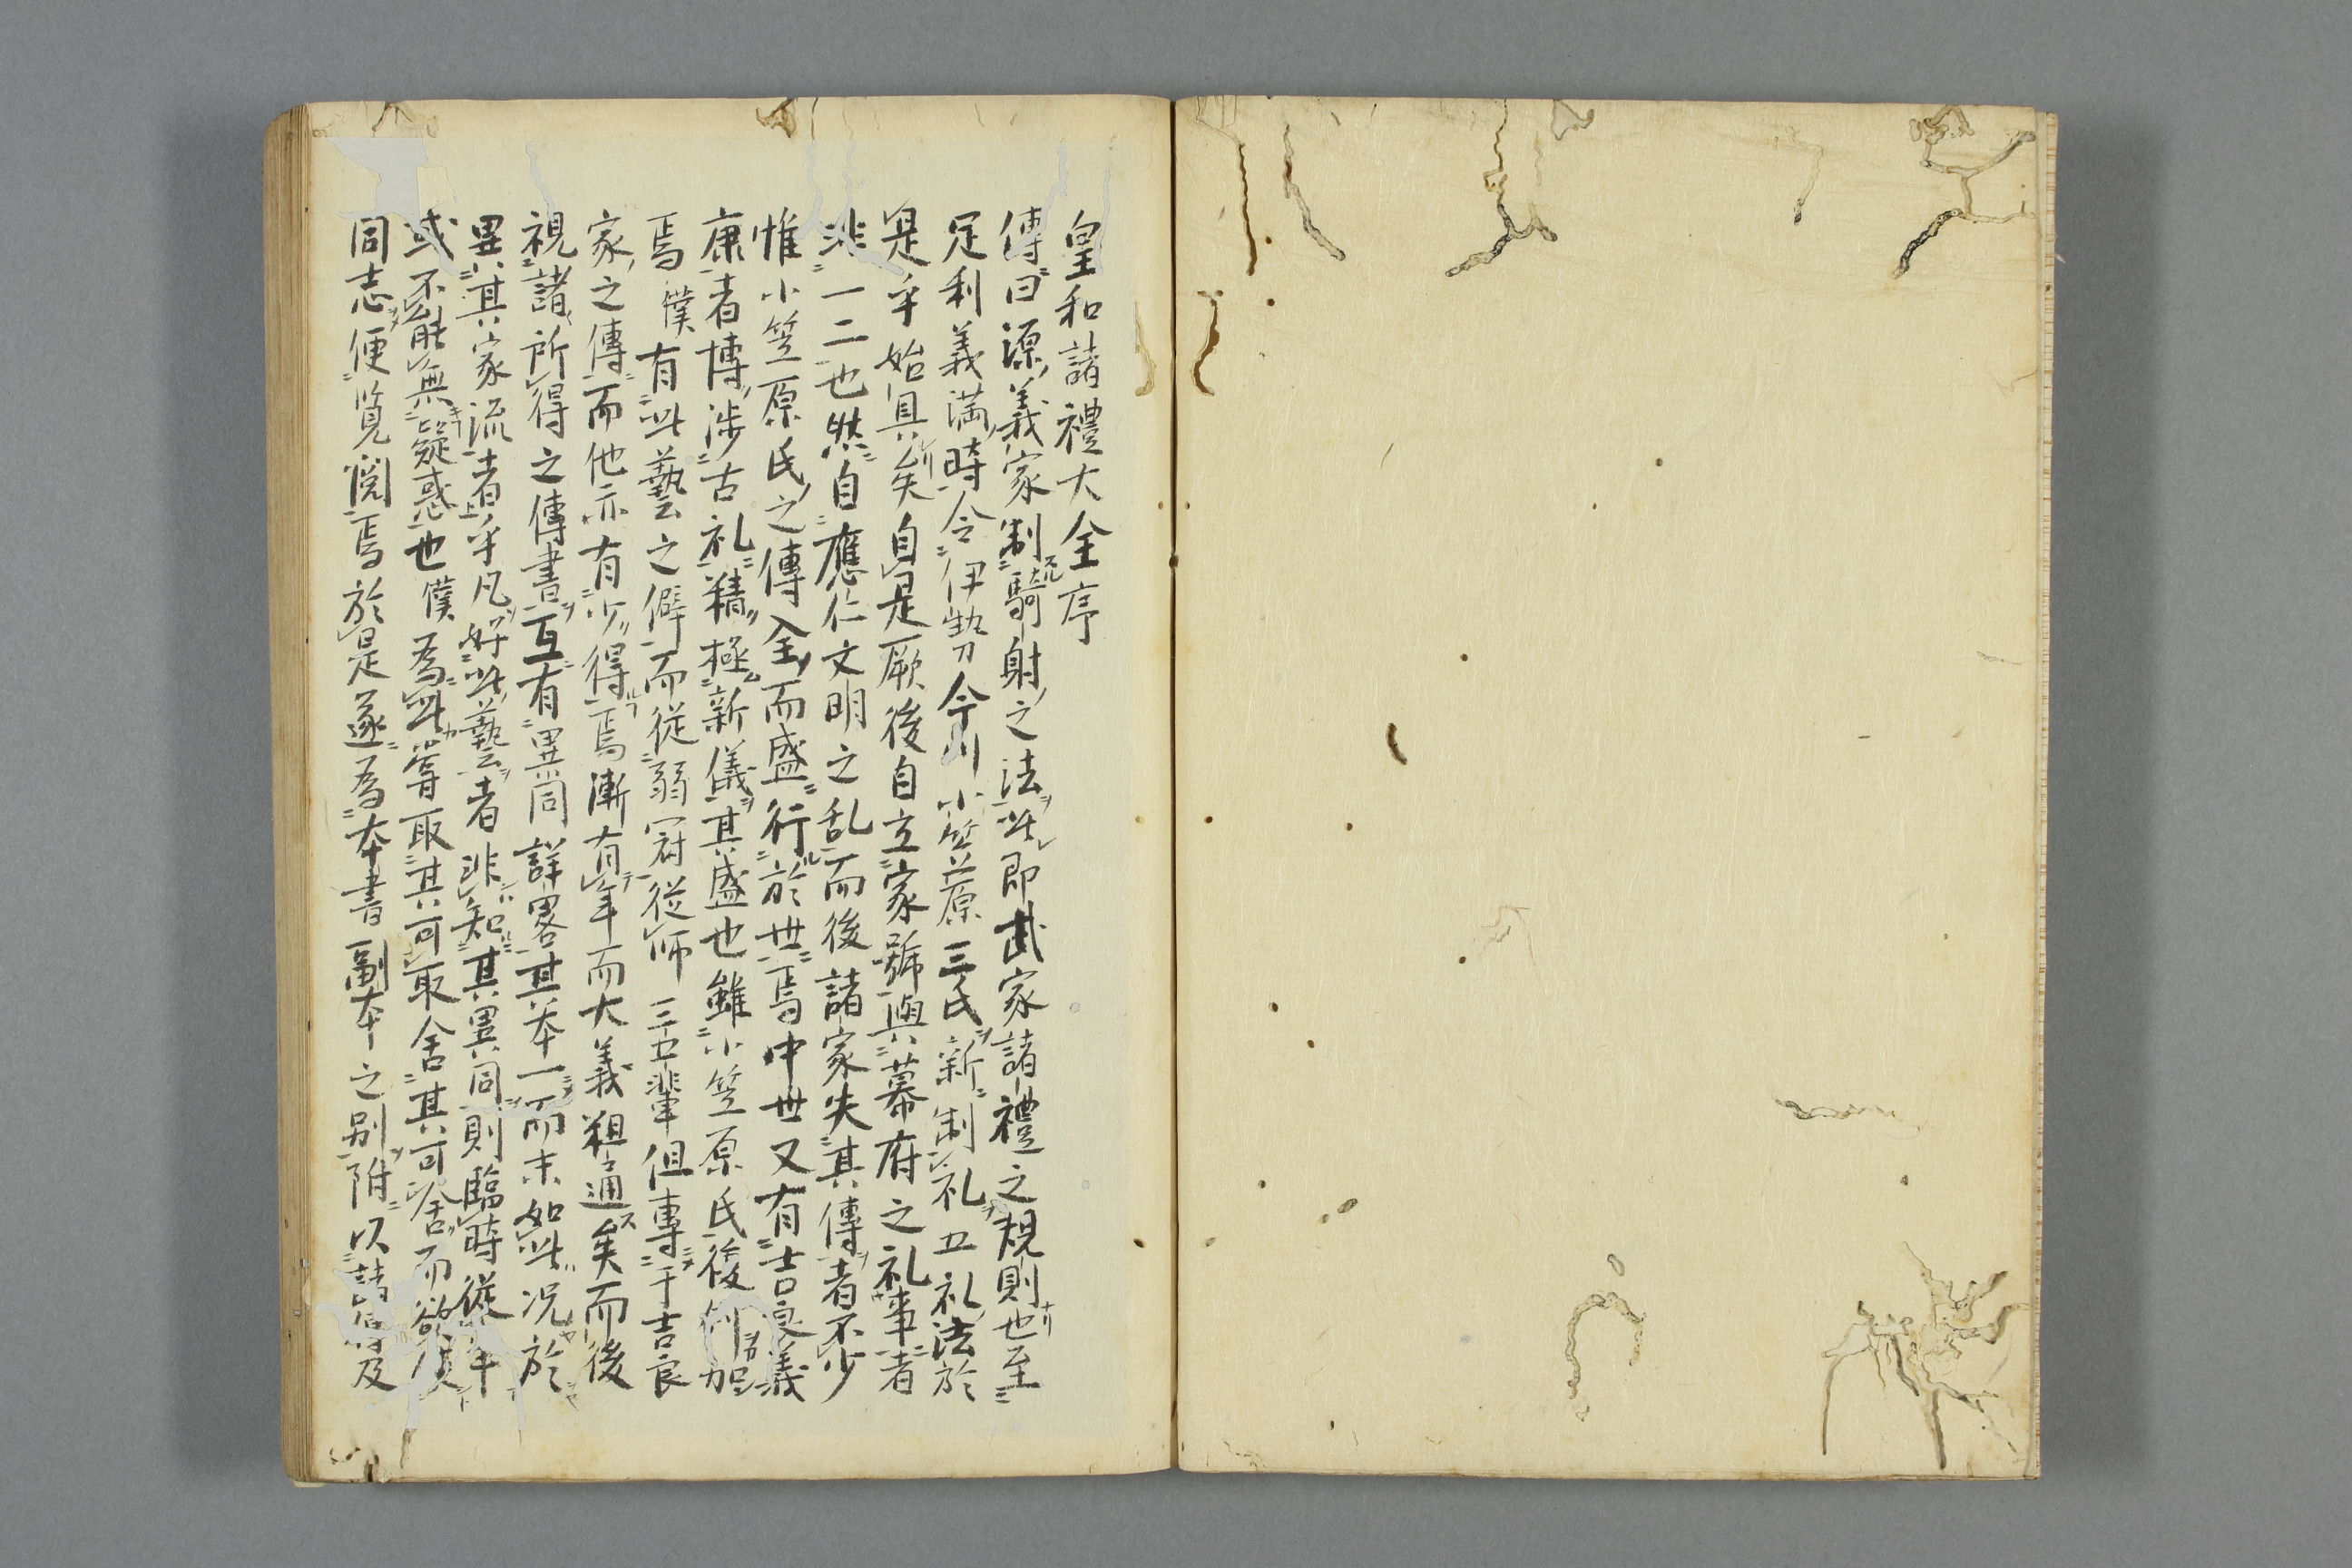 皇和諸禮大全序
傳曰源義家制騎射之法此即武家諸禮之規則也至
足利義満時令伊勢今川小笠原三氏新制礼五礼法於
是乎始具矣自是厥後自立家號與幕府之礼事者
非一二也然自應仁文明之乱而後諸家失其傳者不少
惟小笠原氏之傳全而盛行於世焉中世又有吉良義
康者博渉古礼精極新儀其盛也雖小笠原氏後何加
焉僕有此藝之僻而従弱冠従師三五輩但專于吉良
家之傳而他亦有少得焉漸有年而大義粗通矣而後
視諸所得之傳書互有異同詳畧其本一而末如此况於
異其家流者乎凡好此藝者非知其異同則臨時從事
或不能無疑惑也僕為此嘗取其可取舍其可舍而欲使
同志便覧閲焉於是遂為本書副本之别附以諸得及